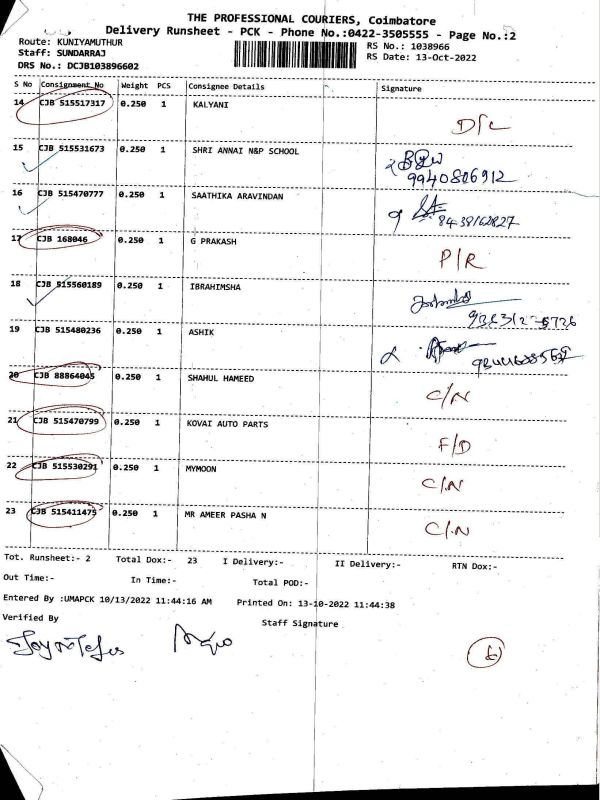 THE PROFESSIONAL COURIERS, Coimbatore
Delivery Runsheet - PCK - Phone No.:0422-3505555 - Page No.:2
Route: KUNIYAMUTHUR
RS No.: 1038966
Staff: SUNDARRAJ
RS Date: 13-Oct-2022
DRS No.: DCJB103896602
S No Consignment No Weight PCS Consignee Details Signature
14 CJB 515517317 0.250 1 KALYANI D/L
15 CJB 515531673 0.250 1 SHRI ANNAI N&P SCHOOL
9940806912
16 CJB 515470777 0.250 1 SAATHIKA ARAVINDAN
8438162827
17 CJB 168046 0.250 1 G PRAKASH P/R
18 CJB 515560189 0.250 1 IBRAHIMSHA
19 CJB 515480236 0.250 1 ASHIK
20 CJB 88864045 0.250 1 SHAHUL HAMEED C/N
21 CJB 515470799 0.250 1 KOVAI AUTO PARTS F/D
22 CJB 515530291 0.250 1 MYMOON C/N
23 CJB 515411475 0.250 1 MR AMEER PASHA N C/N
Tot. Runsheet:- 2 Total Dox:- 23 I Delivery:- II Delivery:- RTN Dox:-
Out Time:- In Time:- Total POD:-
Entered By :UMAPCK 10/13/2022 11:44:16 AM Printed On: 13-10-2022 11:44:38
Verified By Staff Signature